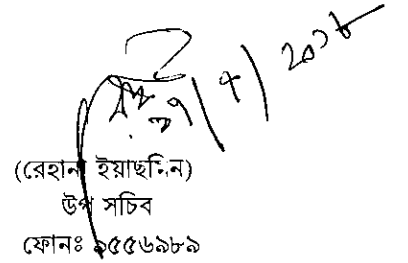 ২০১৮
(রেহানা ইয়াছমিন)
উপ সচিব
ফোনঃ ৯৫৫৬৯৮৯